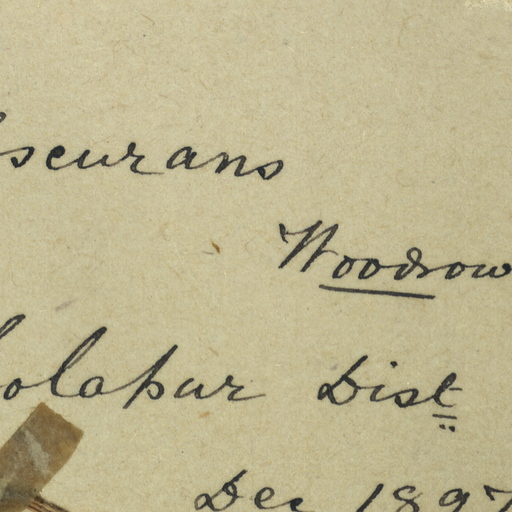 scurans
Woodrow
Solapur Dist
Dec 1897